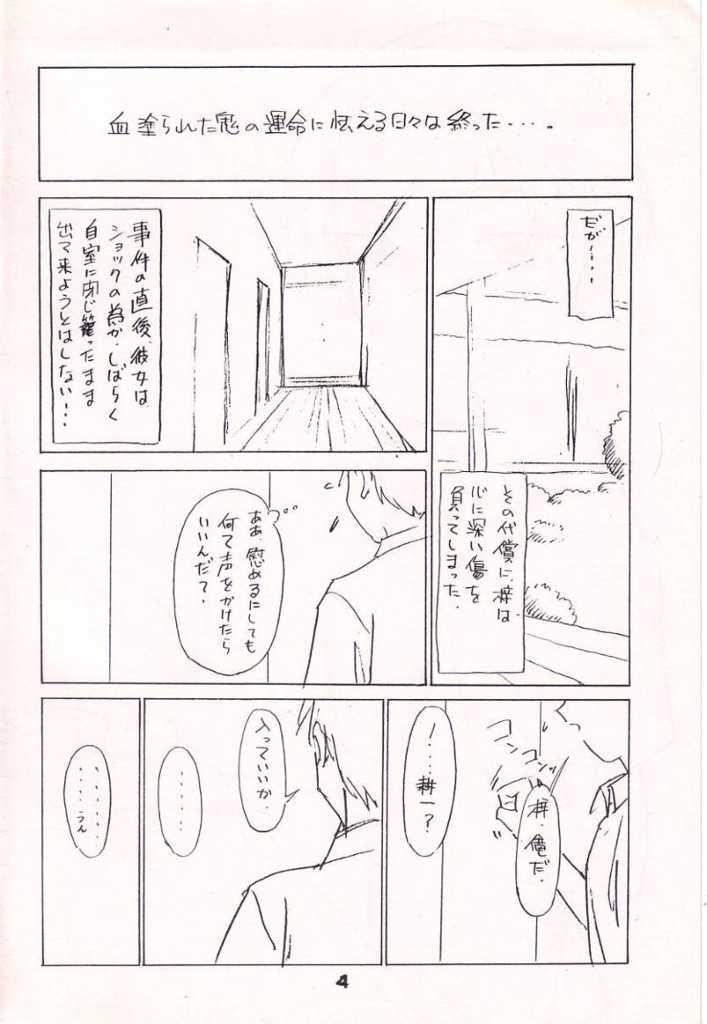 血塗られた鬼の運命に怯える日々は終った・・・。
だが・・・・
その代償に、梓は
心に深い傷を
負ってしまった.
事件の直後、彼女は、
ショックの為か、しばらく
自室に閉じ篭ったまま
出て来ようとはしない!..
ああ、慰めるにしても
何て声をかけたら
いいんだて.
コン
コン
梓、俺だ.
!・・・耕一?
入っていいか.
・・・・・
・・・・・
・・・・うん
4